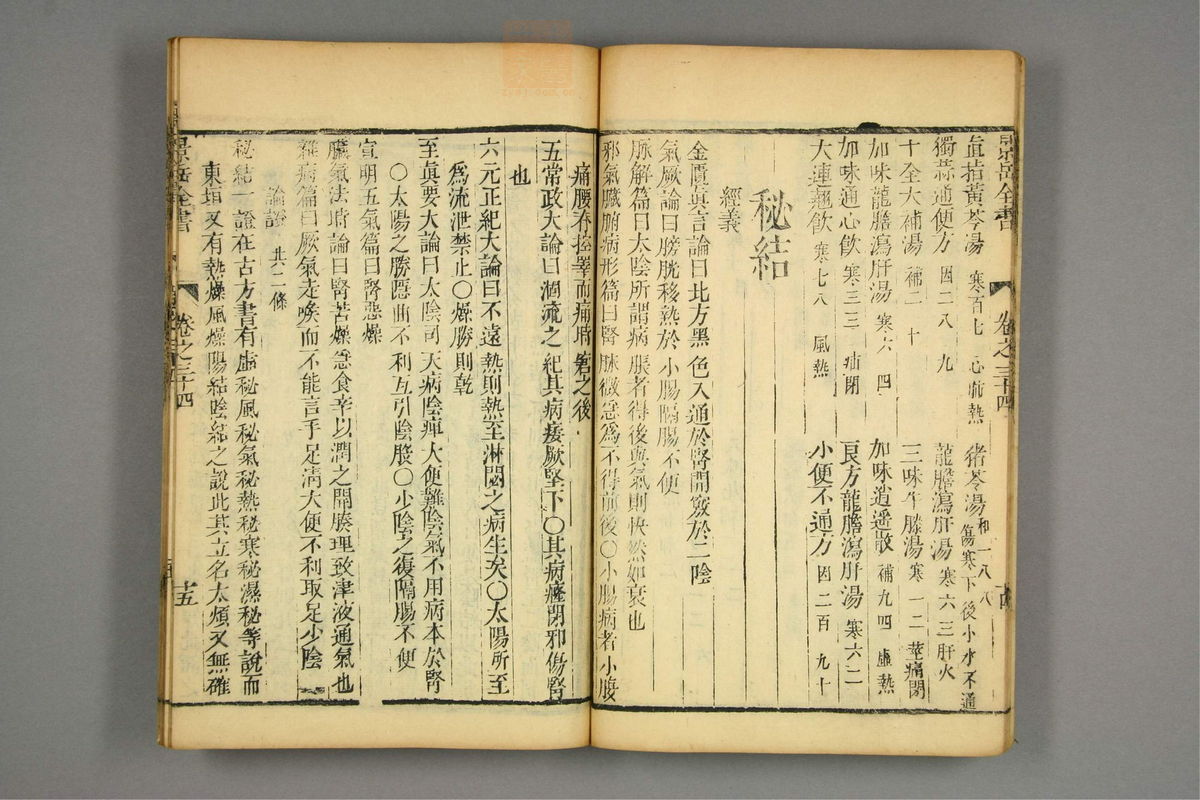 景岳全書 卷之三十四
直指黃芩湯 寒百七 心肺熱 猪苓湯 和一八八 傷寒下後小水不通
獨蒜通便方 因二八九 龍膽瀉肝湯 寒六三 肝火
十全大補湯 補二十 三味牛膝湯 寒一二 莖痛閉
加味龍膽瀉肝湯 寒六四 加味逍遙散 補九四 虛熱
加味通心飲 寒三三 疝閉 良方龍膽瀉肝湯 寒六二
大連翹飲 寒七八 風熱 小便不通方 因二百九十
秘結
經義
金匱眞言論曰北方黑色入通於腎開竅於二陰
氣厥論曰膀胱移熱於小腸隔腸不便
脉解篇曰太陰所謂病脹者得後與氣則快然如衰也
邪氣臟腑病形篇曰腎脉微急爲不得前後〇小腸病者小腹
痛腰脊控睪而痛時窘之後
五常政大論曰涸流之紀其病痿厥堅下〇其病癃閉邪傷腎
也
六元正紀大論曰不遠熱則熱至淋閟之病生矣〇太陽所至
爲流泄禁止〇燥勝則乾
至眞要大論曰太陰司天病陰痺大便難陰氣不用病本於腎
〇太陽之勝隱曲不利互引陰股〇少陰之復隔腸不便
宣明五氣篇曰腎惡燥
臟氣法時論曰腎苦燥急食辛以潤之開腠理致津液通氣也
雜病篇曰厥氣走喉而不能言手足清大便不利取足少陰
論證 共二條
秘結一證在古方書有虛秘風秘氣秘熱秘寒秘濕秘等說而
東垣又有熱燥風燥陽結陰結之說此其立名太煩又無確
景岳全書 卷之三十四 十五